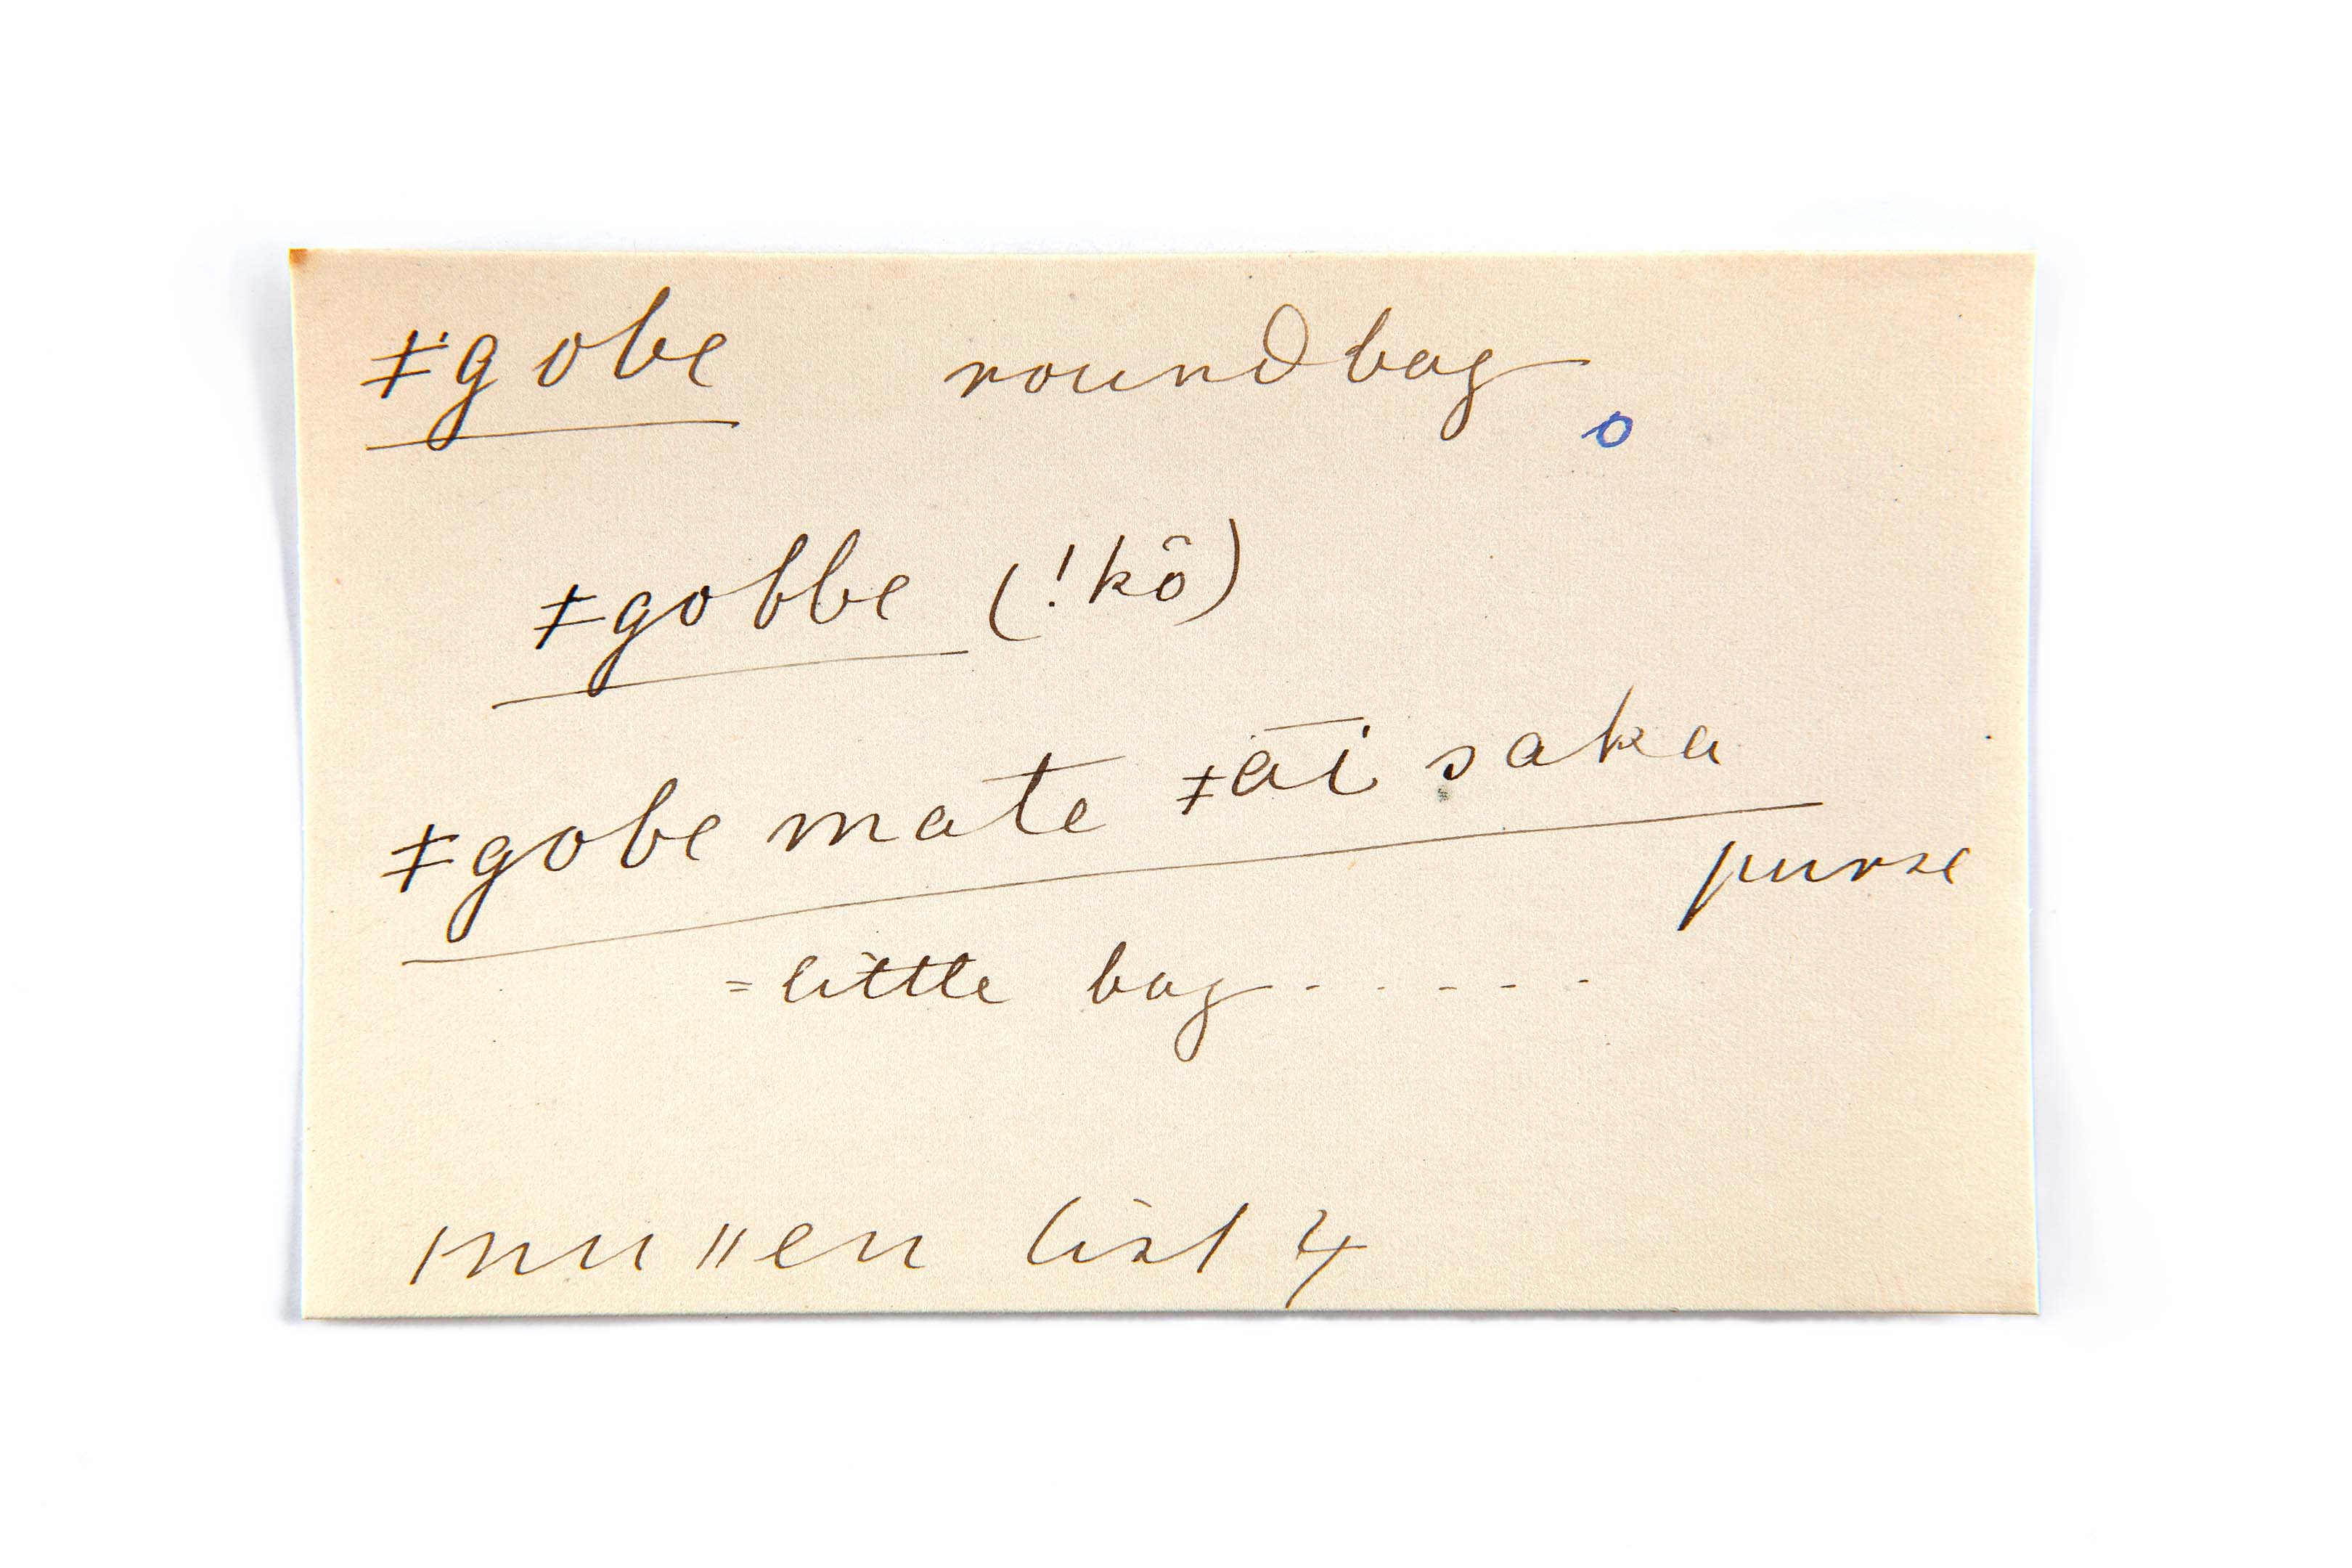 ǂgobe roundbag
o
ǂgobbe (!kô)
ǂgobe mate ǂāi saka
purse
= little bag - - - - -
ǀnu ǁen list 4